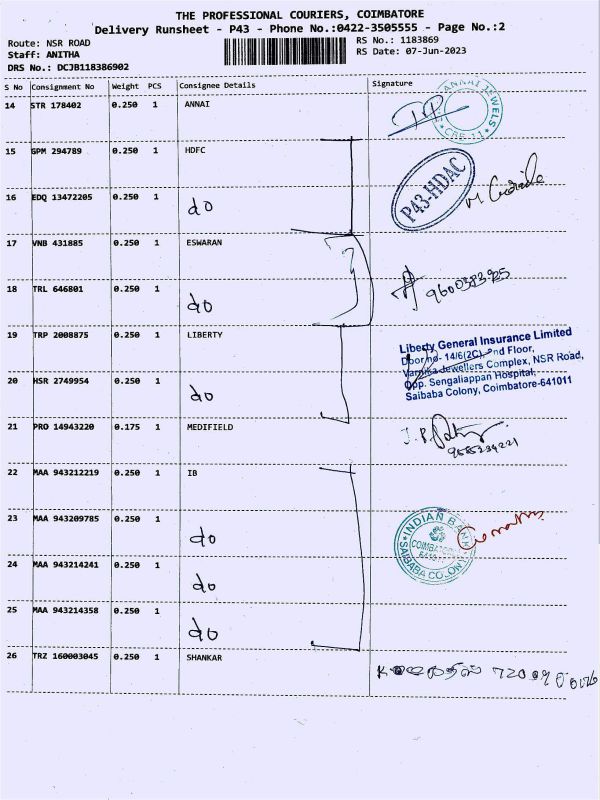 THE PROFESSIONAL COURIERS, COIMBATORE
Delivery Runsheet - P43 - Phone No.:0422-3505555 - Page No.:2
Route: NSR ROAD RS No.: 1183869
Staff: ANITHA RS Date: 07-Jun-2023
DRS No.: DCJB118386902
S No Consignment No Weight PCS Consignee Details Signature
14 STR 178402 0.250 1 ANNAI
ANNAI JEWELS
CBE-11
15 GPM 294789 0.250 1 HDFC
P43-HDAC
16 EDQ 13472205 0.250 1 do
17 VNB 431885 0.250 1 ESWARAN
18 TRL 646801 0.250 1 do
19 TRP 2008875 0.250 1 LIBERTY
Liberty General Insurance Limited
Door no- 14/6(2C), 2nd Floor,
Vamika Jewellers Complex, NSR Road,
Opp. Sengaliappan Hospital,
Saibaba Colony, Coimbatore-641011
20 HSR 2749954 0.250 1 do
21 PRO 14943220 0.175 1 MEDIFIELD
9585234221
22 MAA 943212219 0.250 1 IB
23 MAA 943209785 0.250 1 do
INDIAN BANK
COIMBATORE
641011
SAIBABA COLONY
24 MAA 943214241 0.250 1 do
25 MAA 943214358 0.250 1 do
26 TRZ 160003045 0.250 1 SHANKAR